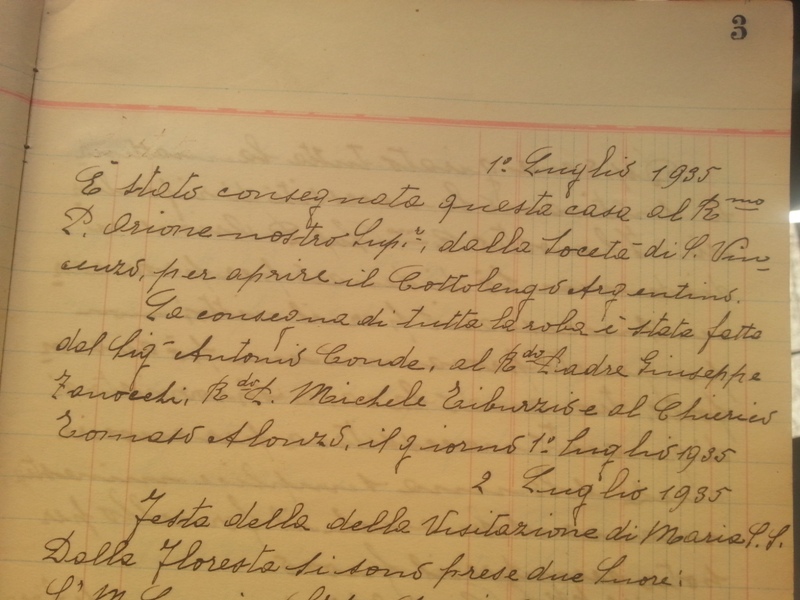 3
1º Luglio 1935
È stato consegnata questa casa al Rmo
P. Orione nostro Sup.re, dalla Società di S. Vin-
cenzo, per aprire il Cottolengo Argentino.
La consegna di tutta la roba è stata fatta
dal Sig Antonio Conde, al Rdo Padre Giuseppe
Zanocchi, Rdo P. Michele Tiburzio e al Chierico
Tomaso Alonzo, il giorno 1º luglio 1935
2 Luglio 1935
Festa della della Visitazione di Maria S.S.
Dalla Floresta si sono prese due Suore: